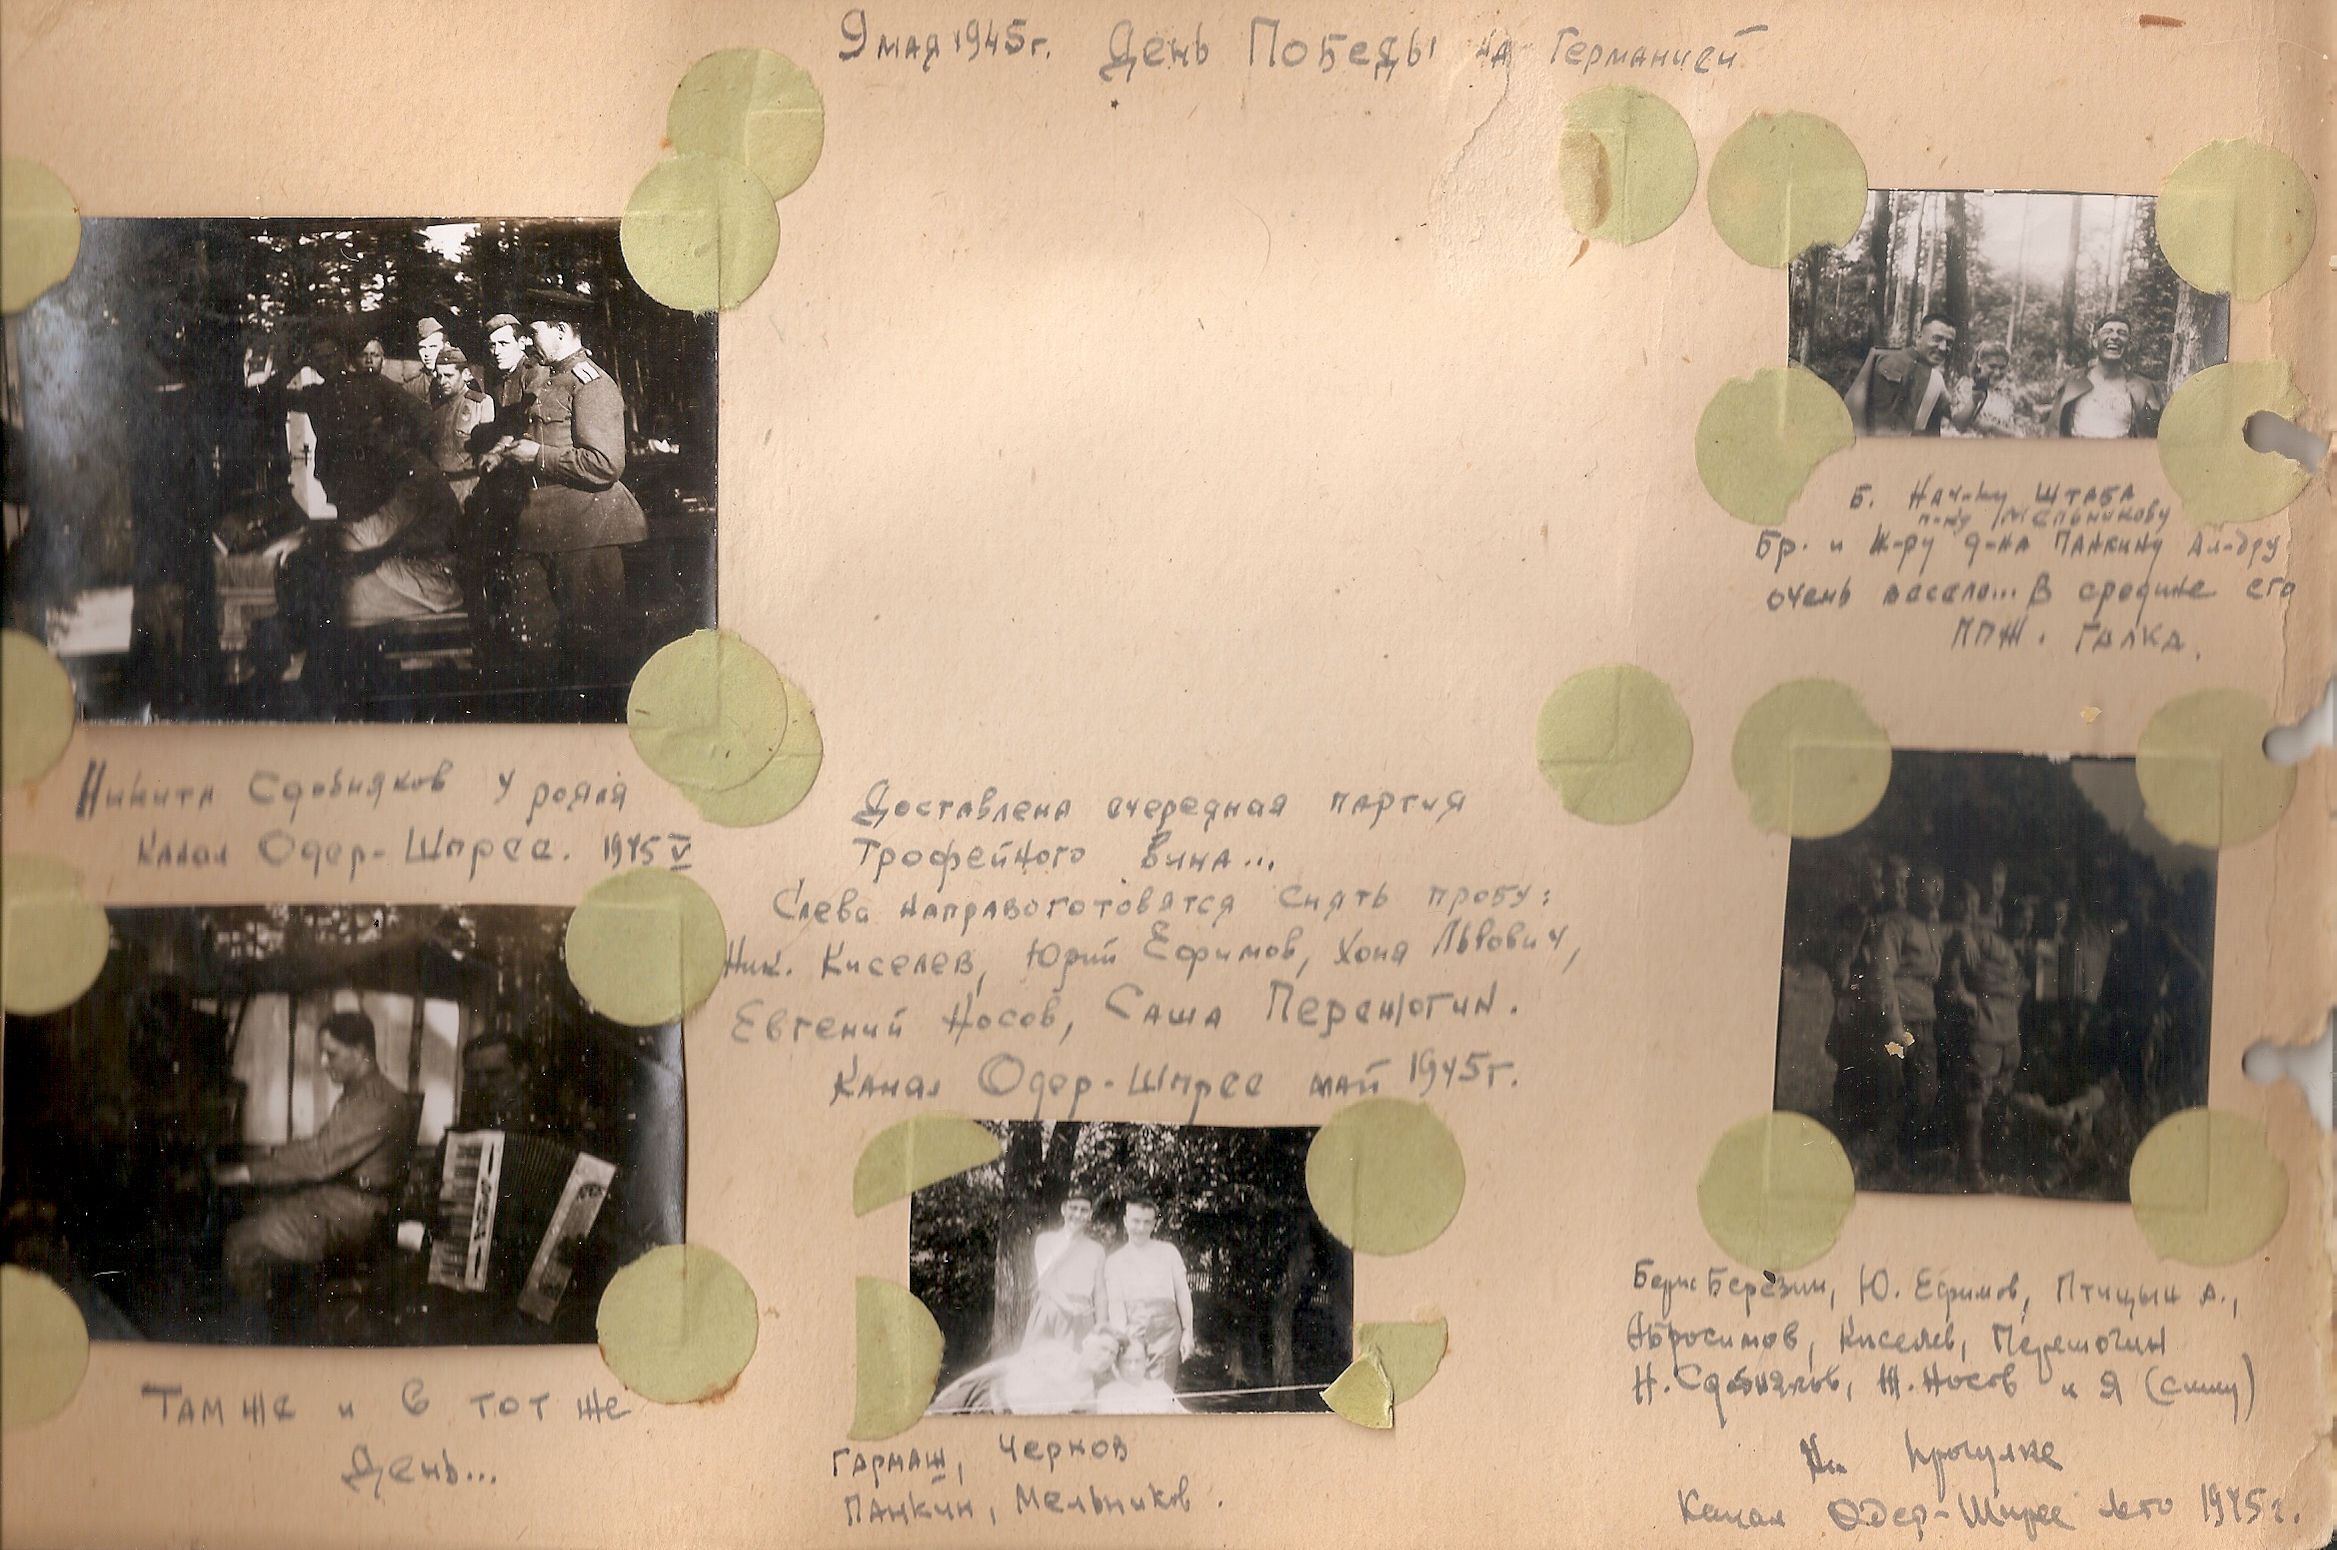 9 мая 1945 г. День Победы на Германией
Никита Сдобняков у рояля
Канал Одер-Шпрее. 1945 V
Там же и в тот же
День...
Доставлена очередная партия
трофейного вина...
Слева направо готовятся снять пробу:
Ник. Киселев, Юрий Ефимов, Хоня Львович,
Евгений Носов, Саша Перешогин.
Канал Одер-Шпрее май 1945 г.
Гармаш, Чернов
Панкин, Мельников.
Б. Нач-ку штаба
п-ка Мельникову
Бр. и к-ру д-на Панкину Ал-дру
очень весело... В средине его
ППЖ. Галка.
Борис Березин, Ю. Ефимов, Птицын А.,
Абросимов, Киселев, Перешогин
Н. Сдобняков, Ж. Носов и я (сижу)
На прогулке
Канал Одер-Шпрее лето 1945 г.